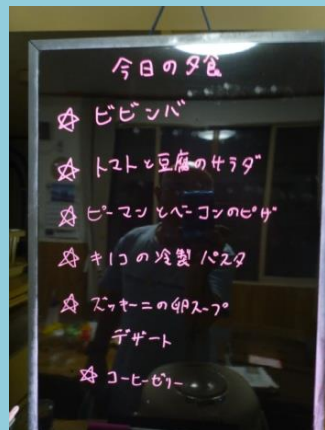 今日の夕食
☆ ビビンバ
☆ トマトと豆腐のサラダ
☆ ピーマンとベーコンのピザ
☆ キノコの冷製パスタ
☆ ズッキーニの卵スープ
デザート
☆ コーヒーゼリー